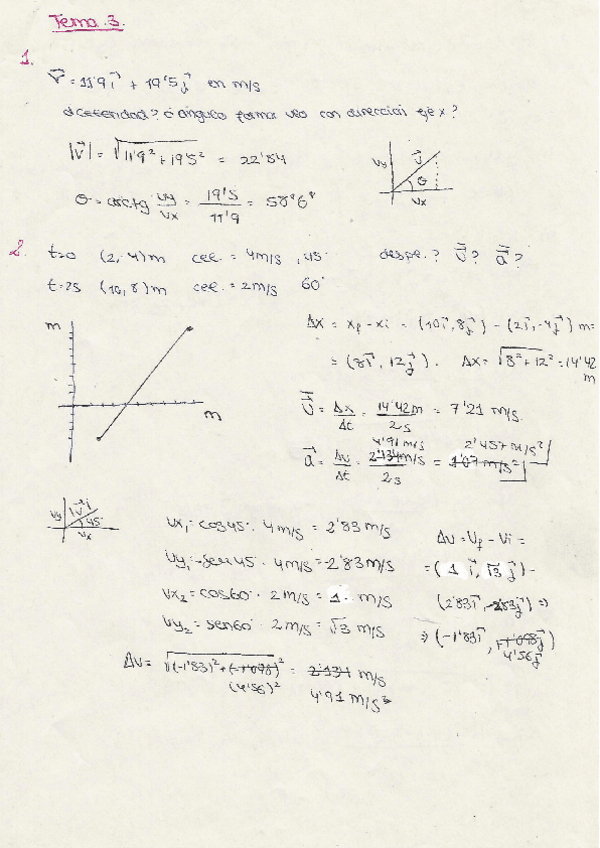 Tema 3.
1.
V⃗ = 11'9 i⃗ + 19'5 j⃗ en m/s
¿celeridad? ¿ángulo forma vec con dirección eje x?
|V⃗| = √(11'9² + 19'5²) = 22'84
θ = arctg vy/vx = 19'5/11'9 = 58'6°
vy v⃗ θ vx
2. t=0 (2,-4)m cel. = 4m/s, 45° despl.? v⃗? a⃗?
t=2s (10,8)m cel. = 2m/s 60°
m
m
Δx = xf - xi = (10i⃗, 8j⃗) - (2i⃗, -4j⃗) m =
= (8i⃗, 12j⃗). Δx = √(8² + 12²) = 14'42 m
v⃗ = Δx/Δt = 14'42m/2s = 7'21 m/s.
4'91 m/s 2'457 m/s²
a⃗ = Δv/Δt = 2'134m/s/2s = 1'07 m/s²
vy v⃗i 45° vx
vx₁ = cos45 · 4m/s = 2'83 m/s
vy₁ = -sen45 · 4m/s = -2'83 m/s
vx₂ = cos60 · 2m/s = 1 m/s
vy₂ = sen60 · 2m/s = √3 m/s
Δv = Vf - Vi =
= (1 i⃗, √3 j⃗) -
(2'83i⃗, -2'83j⃗) ⇒
⇒ (-1'83i⃗, -1'098j⃗)
4'56j⃗
Δv = √((-1'83)² + (-1'098)²) = 2'134 m/s
(4'56)² 4'91 m/s